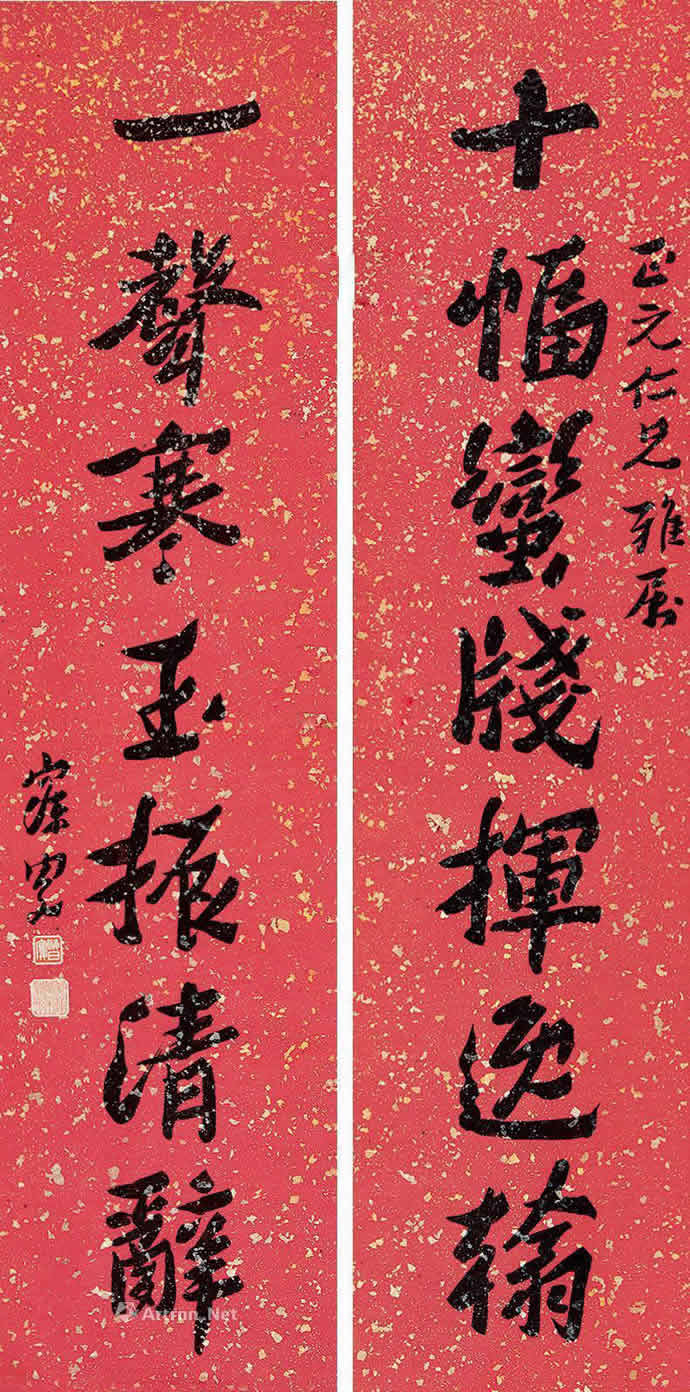 正元仁兄雅属
十幅蠻牋揮逸翰
一聲寒玉振清辭
寐叟
Artron.Net